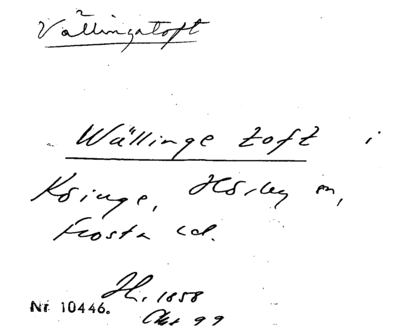 Vällingatoft
Wällinge toft i
Köinge, Hörby sn,
Frosta hd.
H. 1858
Nr 10446.
Akt 99